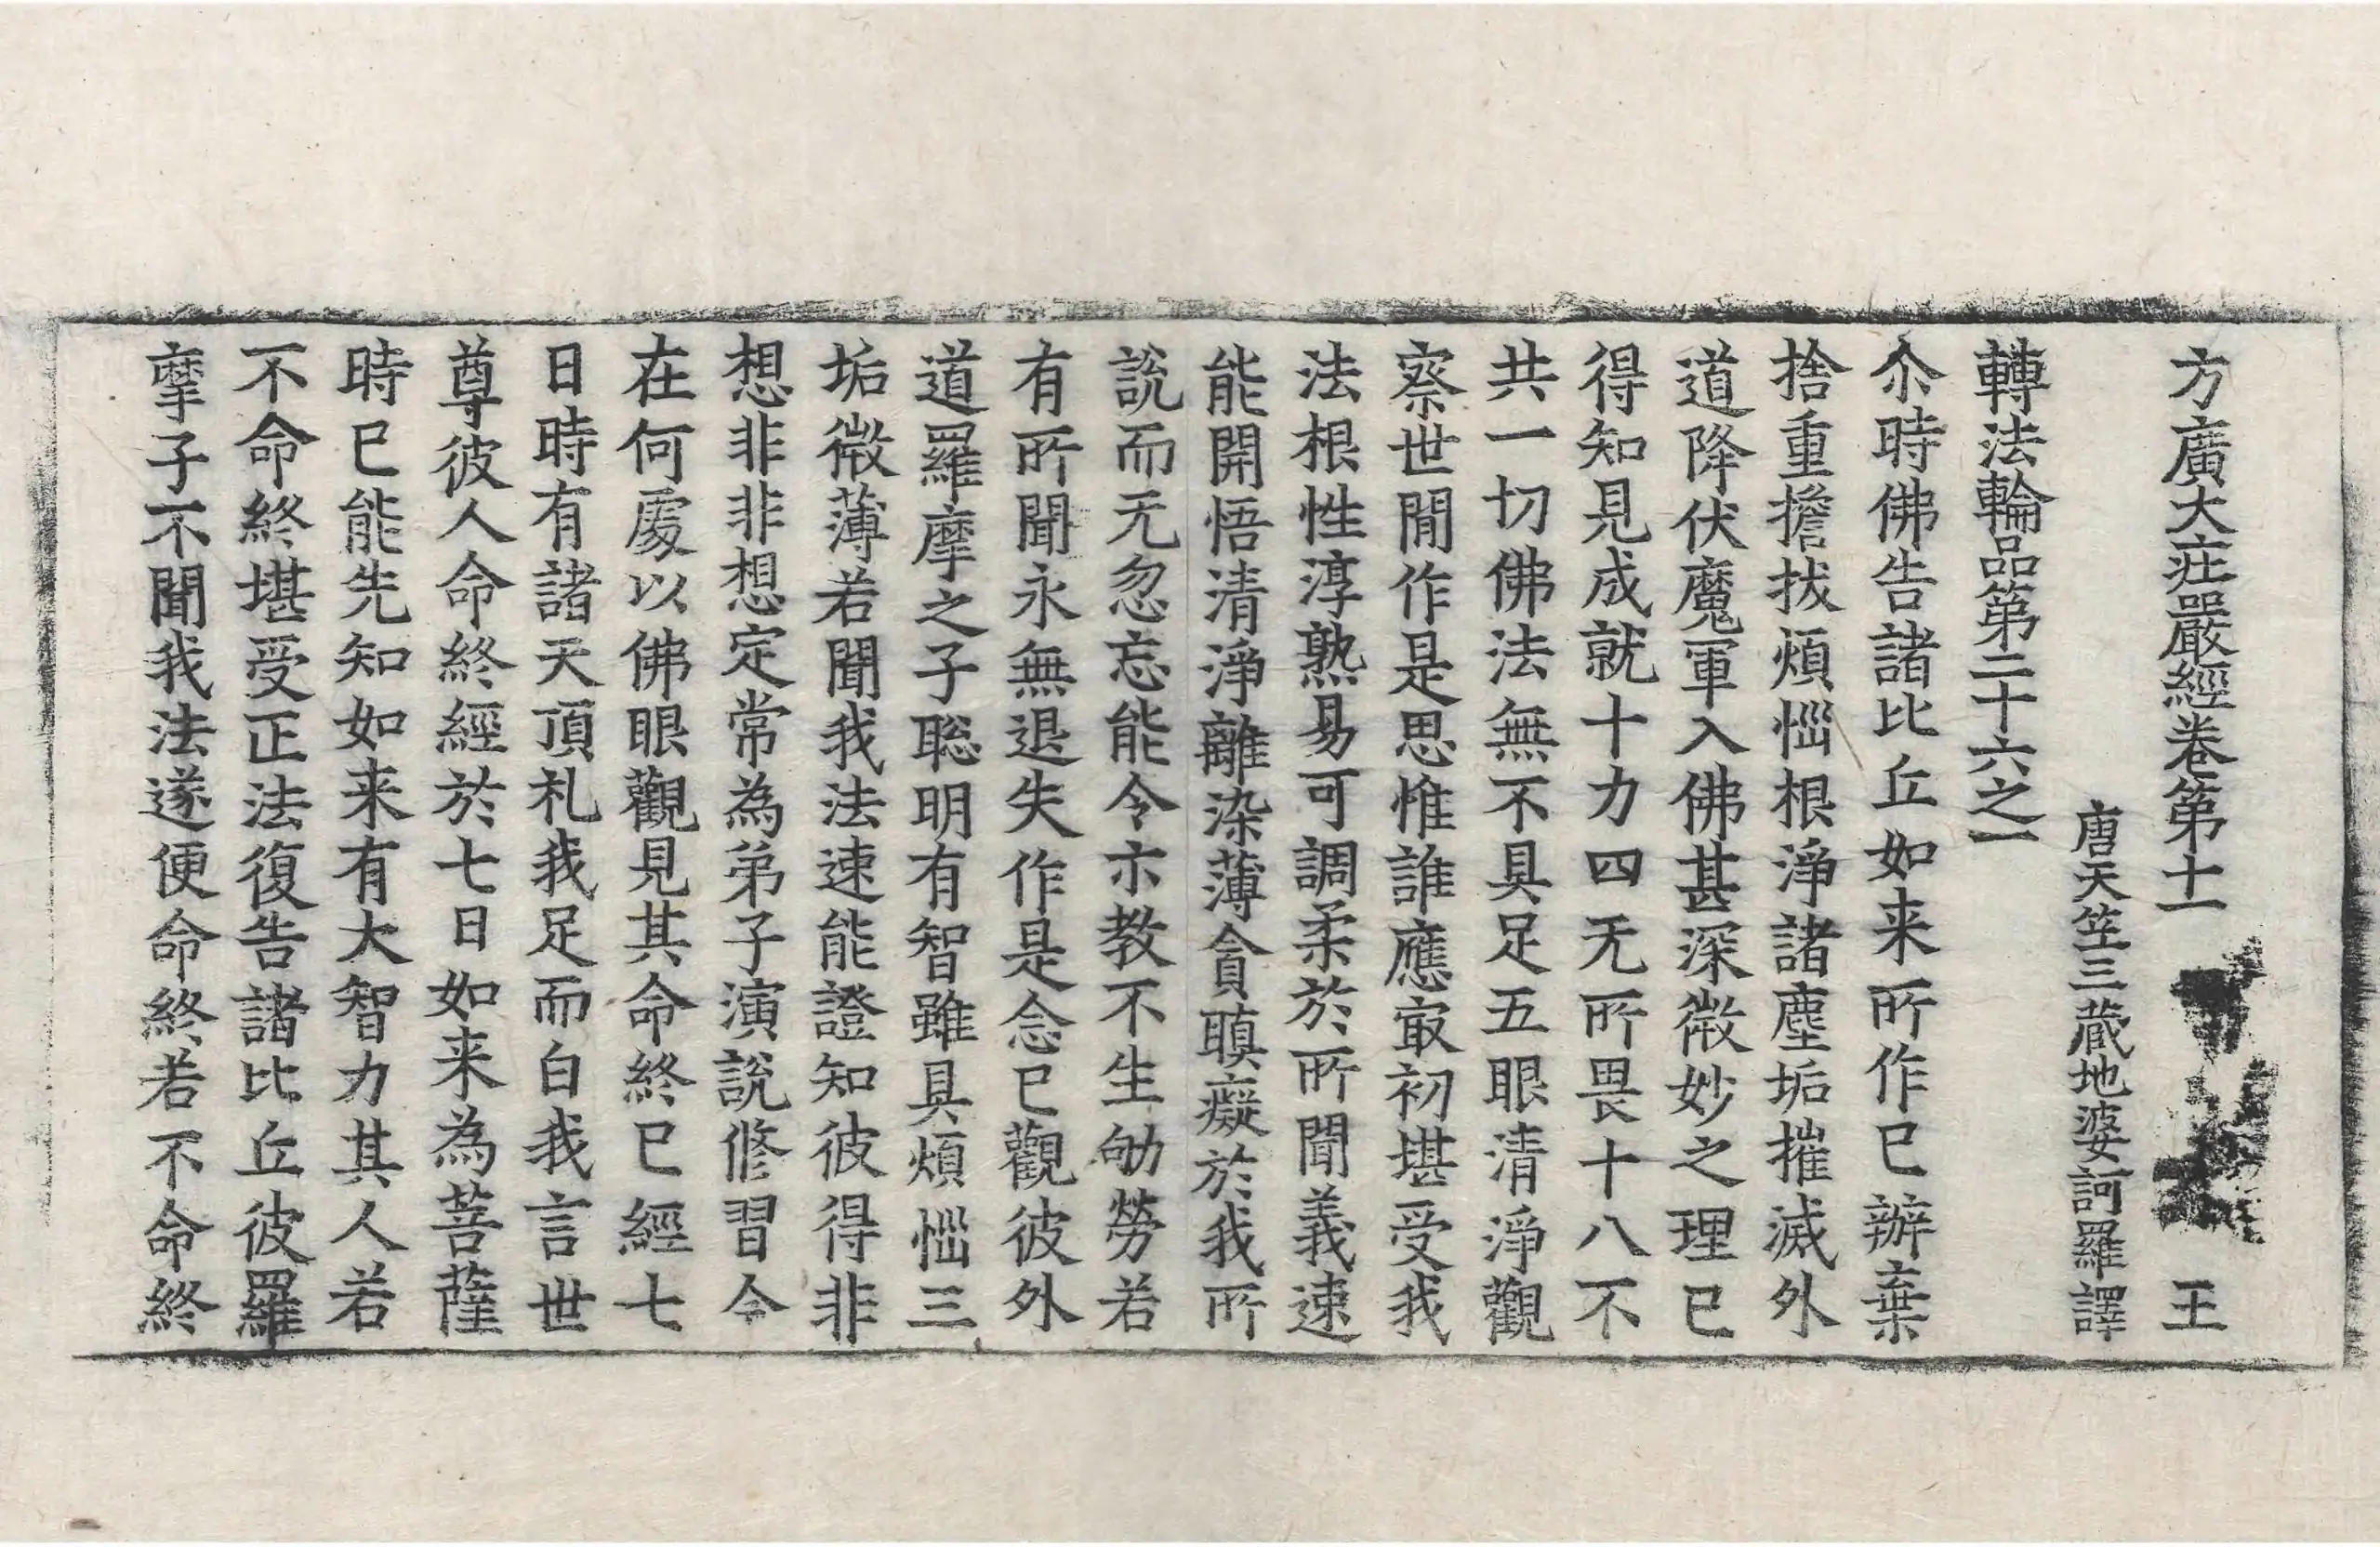 方廣大莊嚴經卷第十一 王
唐天笁三藏地婆訶羅譯
轉法輪品第二十六之一
尒時佛告諸比丘如来所作已辦棄
捨重擔拔煩惱根淨諸塵垢摧滅外
道降伏魔軍入佛甚深微妙之理已
得知見成就十力四无所畏十八不
共一切佛法無不具足五眼清淨觀
察世閒作是思惟誰應㝡初堪受我
法根性淳熟易可調柔於所聞義速
能開悟清淨離染薄貪瞋癡於我所
說而无忽忘能令亦教不生劬勞若
有所聞永無退失作是念已觀彼外
道羅摩之子聡明有智雖具煩惱三
垢微薄若聞我法速能證知彼得非
想非非想定常為弟子演說修習今
在何處以佛眼觀見其命終已經七
日時有諸天頂礼我足而白我言世
尊彼人命終經於七日如来為菩薩
時已能先知如来有大智力其人若
不命終堪受正法復告諸比丘彼羅
摩子不聞我法遂便命終若不命終